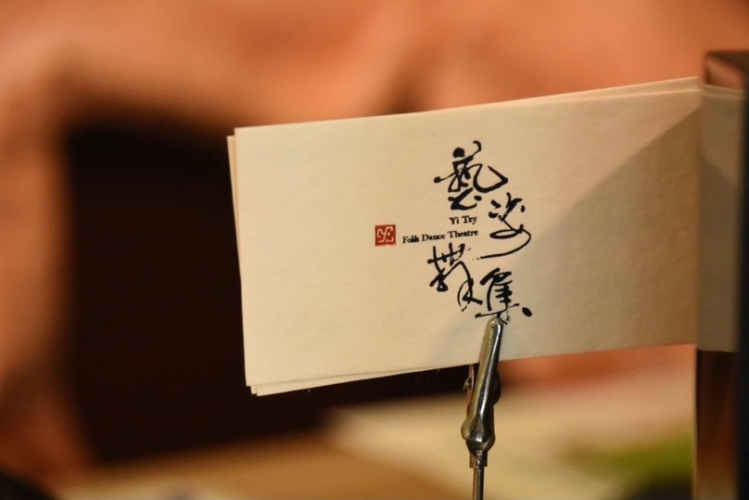 藝姿舞集
Yi Tzy
Folk Dance Theatre